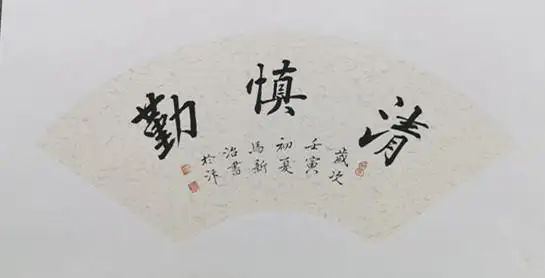 清慎勤
歲次
壬寅
初夏
馬新
治書
於汴